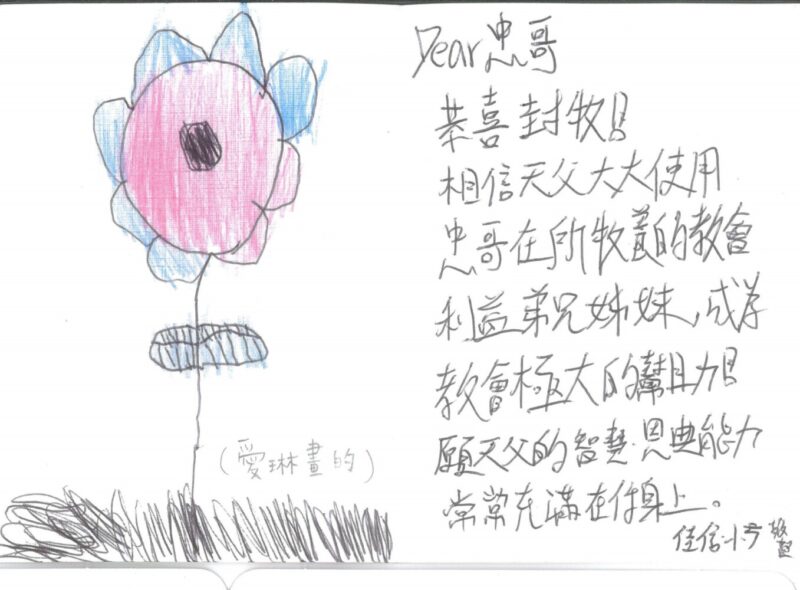 Dear 忠哥
恭喜封牧!!
相信天父大大使用
忠哥在所牧養的教會
利益弟兄姊妹,成為
教會極大的幫助!!
願天父的智慧·恩典能力
常常充滿在你身上。
佳信小
(愛琳畫的)